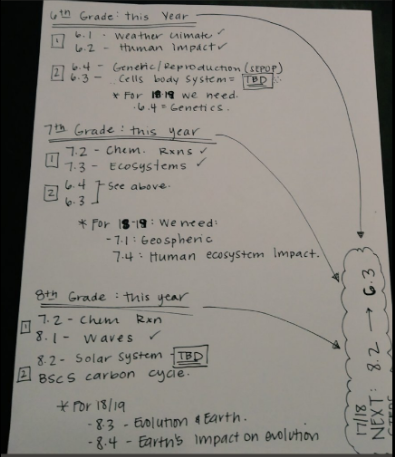 6th Grade: this Year
1 6.1 - Weather Climate ✓
6.2 - Human Impact ✓
2 6.4 - Genetic/Reproduction (SEPUP)
6.3 - Cells body system = TBD
* For 18-19 we need
6.4 = Genetics.
7th Grade: this year
1 7.2 - Chem. Rxns ✓
7.3 - Ecosystems ✓
2 6.4 ] See above.
6.3
* For 18-19: We need:
- 7.1: Geospheric
7.4: Human ecosystem Impact.
8th Grade: this year
1 7.2 - Chem Rxn
8.1 - Waves ✓
8.2 - Solar System - TBD
2 BSCS carbon cycle.
* For 18/19
- 8.3 - Evolution & Earth.
- 8.4 - Earth's Impact on evolution
17/18
NEXT: 8.2 → 6.3